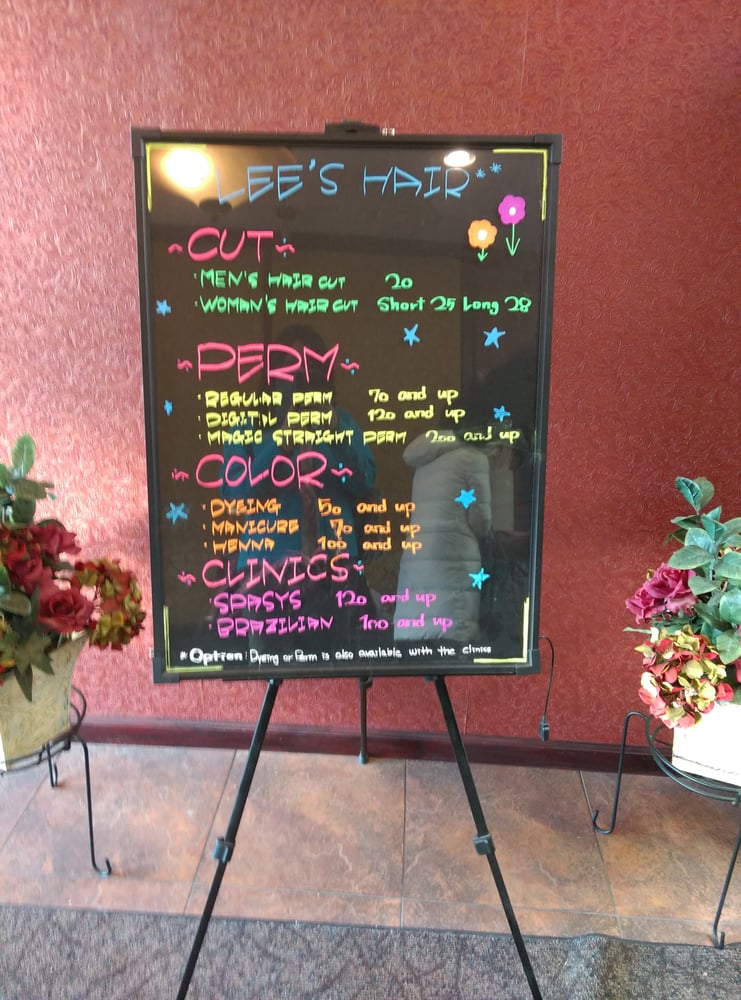 LEE'S HAIR**
~CUT~
·MEN'S HAIR CUT 20
·WOMAN'S HAIR CUT Short 25 Long 28
~PERM~
·REGULAR PERM 70 and up
·DIGITAL PERM 120 and up
·MAGIC STRAIGHT PERM 200 and up
~COLOR~
·DYEING 50 and up
·MANICURE 70 and up
·HENNA 100 and up
~CLINICS~
·SPASYS 120 and up
·BRAZILIAN 100 and up
*Option: Dyeing or Perm is also available with the clinics